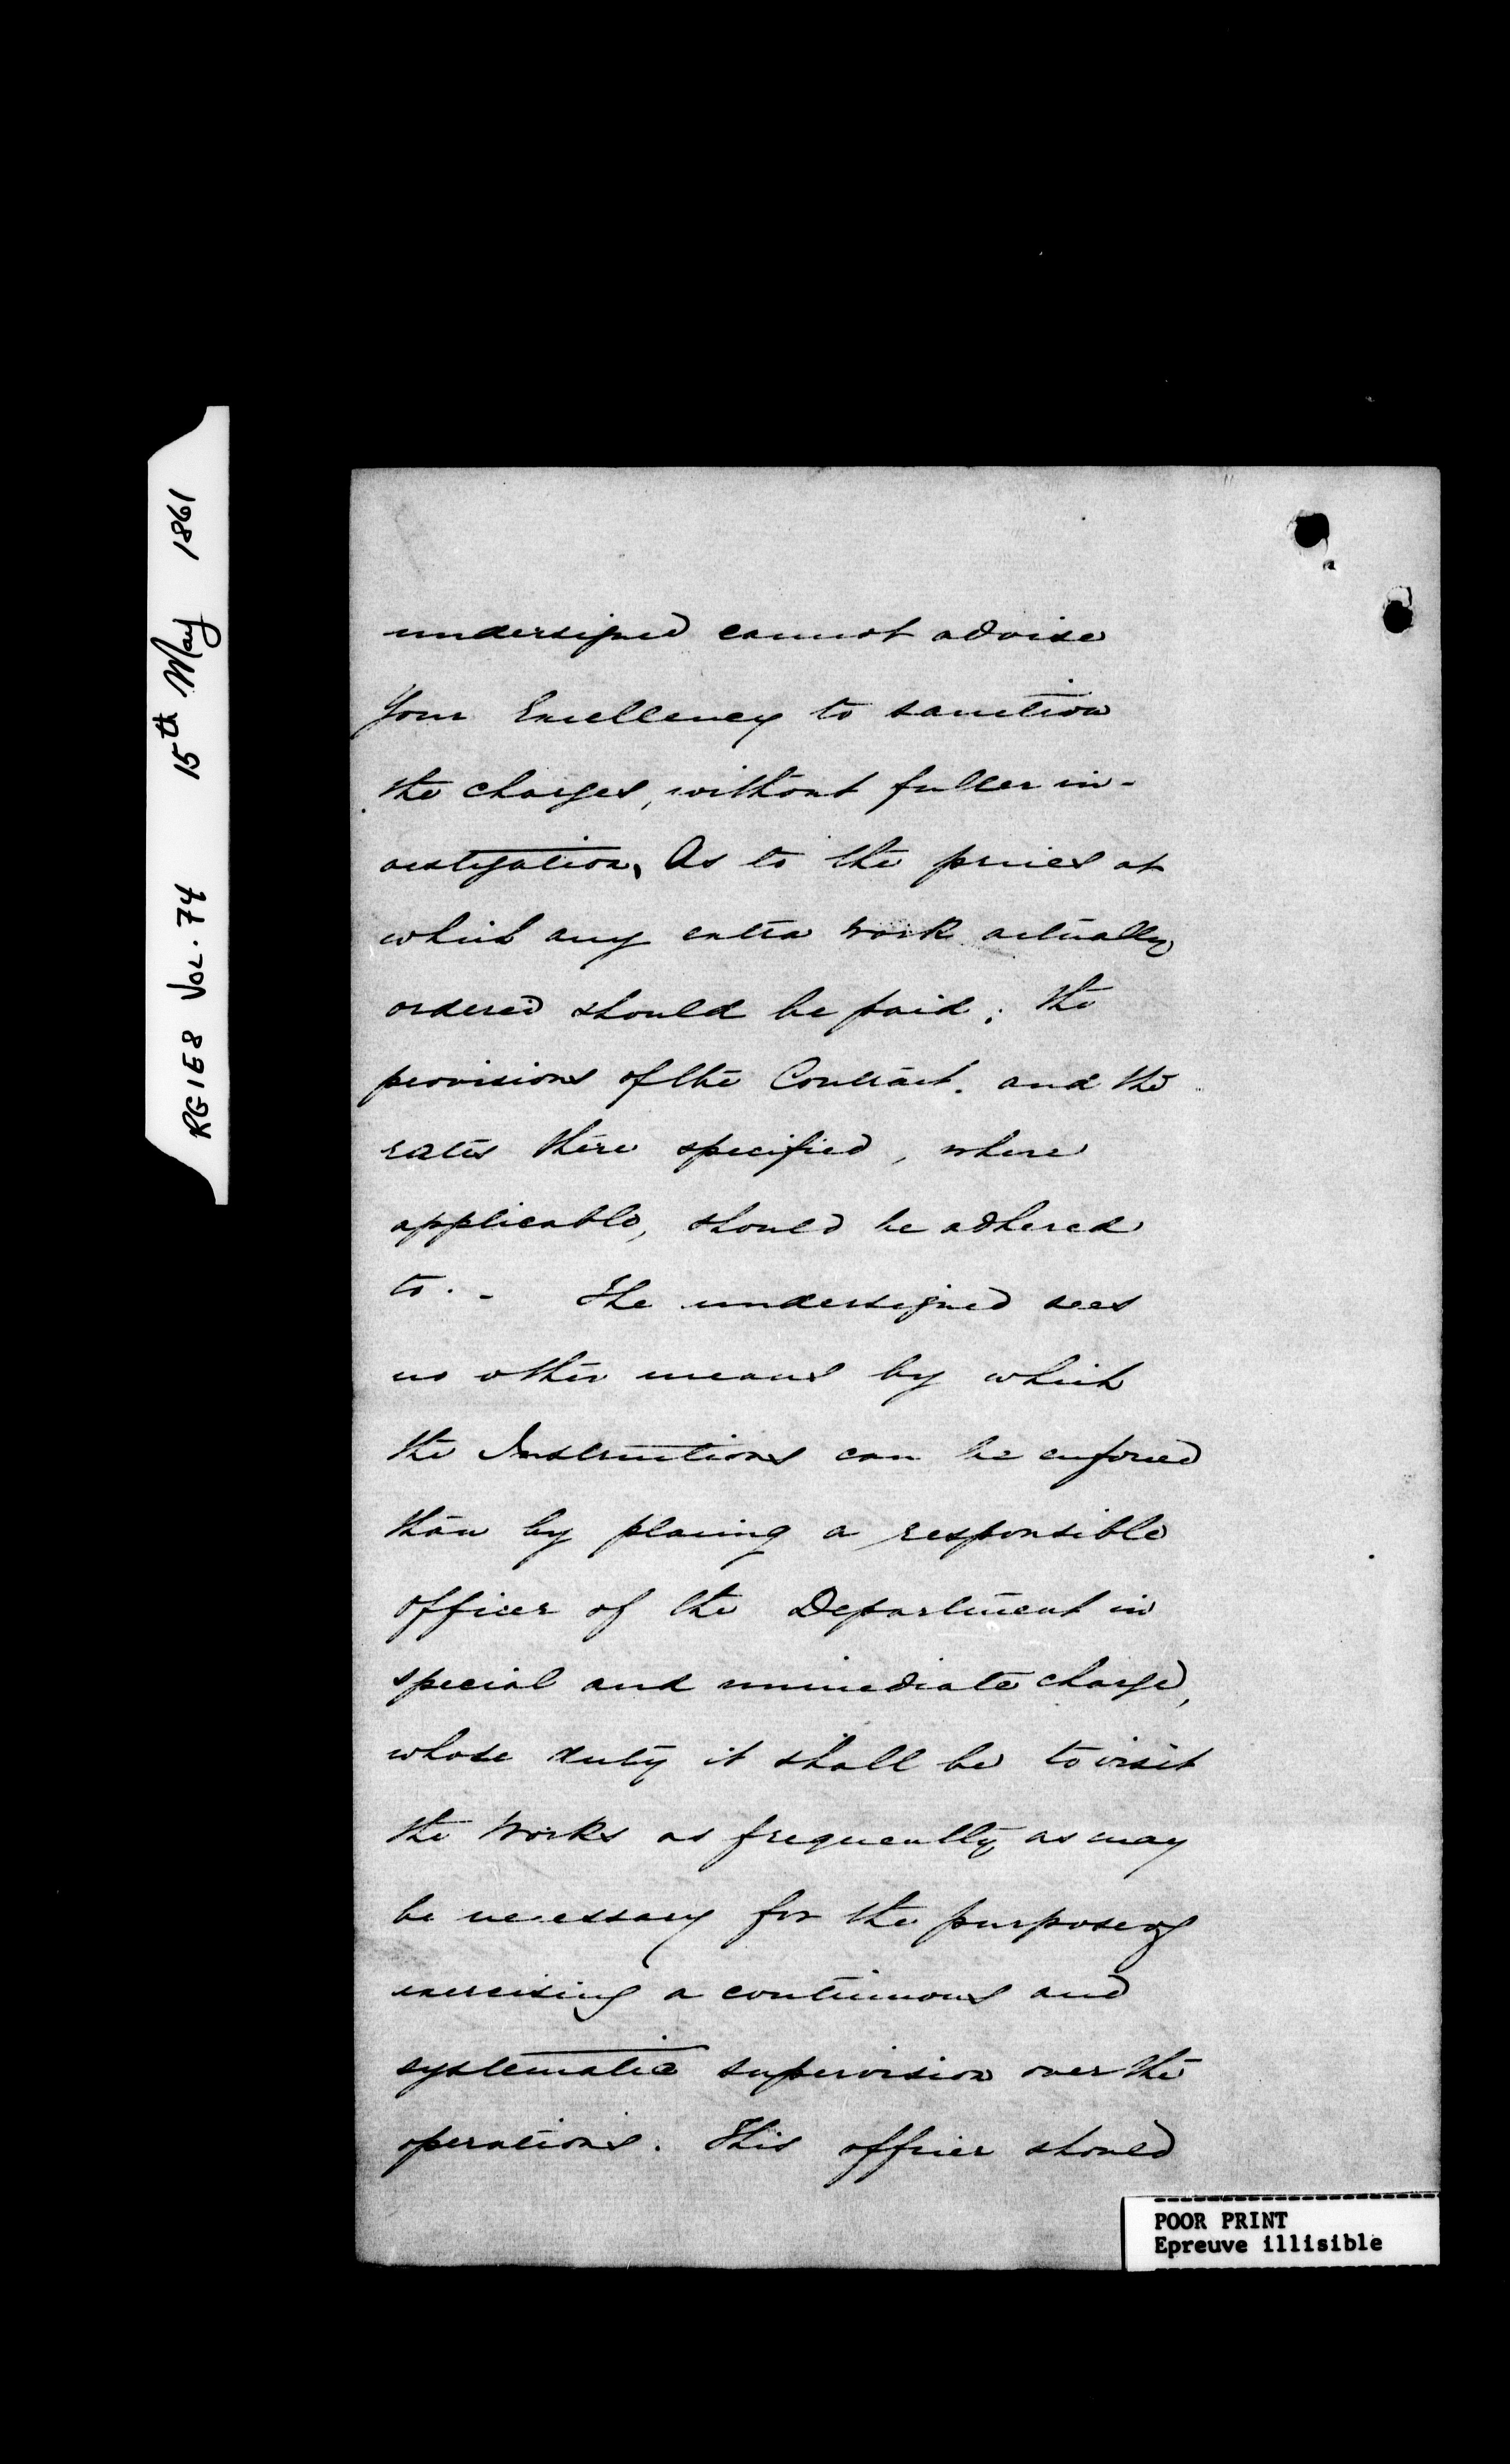 RG1E8 VOL. 74 15th May 1861
undersigned cannot advise
Your Excellency to sanction
the charges, without fuller in-
vestigation, As to the prices at
which any extra work actually
ordered should be paid; the
provisions of the Contract. and the
rates there specified, where
applicable, should be adhered
to. - The undersigned sees
no other means by which
the Instructions can be enforced
than by placing a responsible
officer of the Department in
special and immediate charge,
whose duty it shall be to visit
the Works as frequently as may
be necessary for the purpose of
exercising a continuous and
systematic supervision over the
operations. This officer should
POOR PRINT
Epreuve illisible